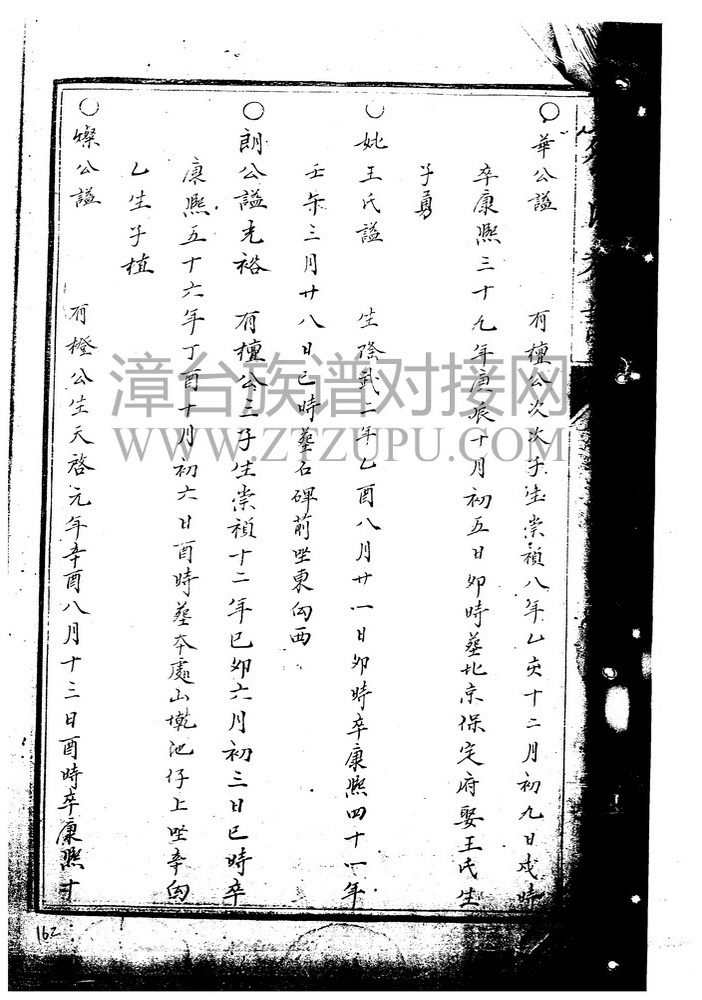 ○華公謚 有檀公次次子生崇禎八年乙亥十二月初九日戌時
卒康熙三十九年庚辰十月初五日卯時墓北京保定府娶王氏生
子勇
○妣王氏謚 生隆武二年乙酉八月廿一日卯時卒康熙四十一年
壬午三月廿八日巳時墓石碑前坐東向西
○朗公謚光裕 有檀公三子生崇禎十二年己卯六月初三日巳時卒
康熙五十六年丁酉十月初六日酉時墓本處山墘池仔上坐辛向
乙生子植
○燦公謚 有橙公生天啓元年辛酉八月十三日酉時卒康熙十
162
漳台族谱对接网
WWW.ZTZUPU.COM